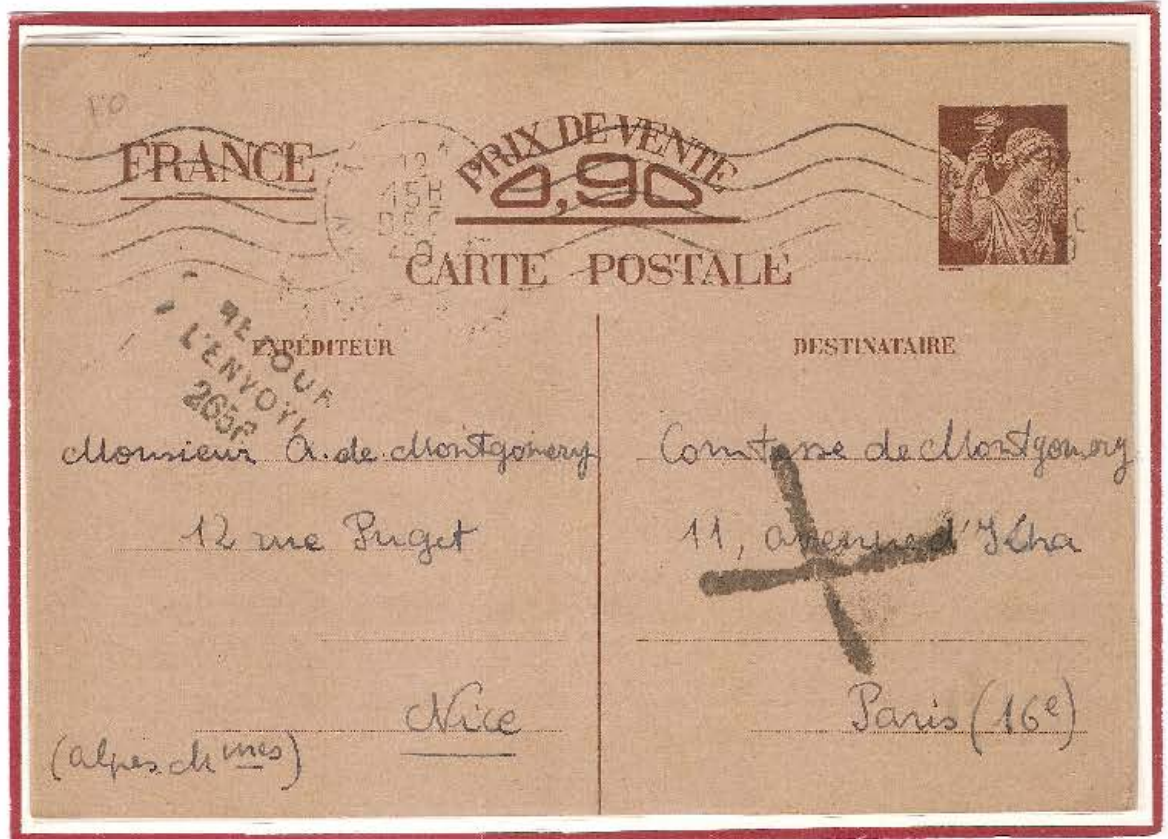 FRANCE
PRIX DE VENTE
0,90
12
15H
DEC
40
CARTE POSTALE
RETOUR
L'ENVOYE
EXPÉDITEUR
Monsieur A. de Montgomery
12 rue Puget
Nice
(Alpes Mmes)
DESTINATAIRE
Comtesse de Montgomery
11, avenue d'Iéna
Paris (16e)